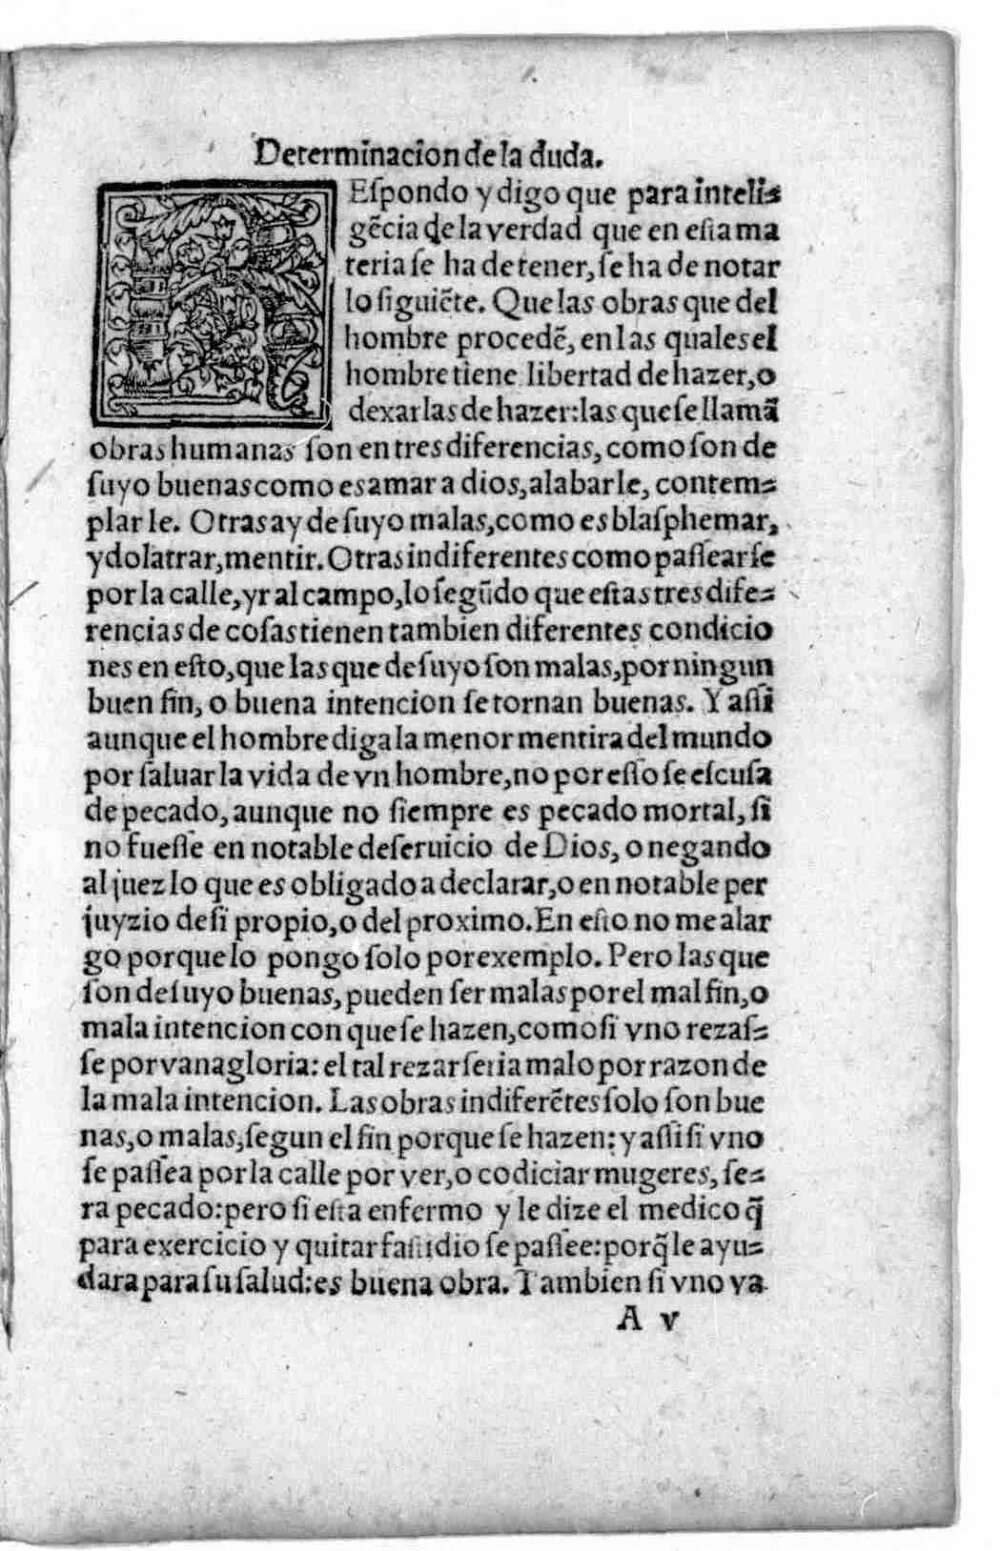 Determinacion de la duda.
REſpondo y digo que para inteli=
gẽcia de la verdad que en eſta ma
teria ſe ha de tener, ſe ha de notar
lo ſiguiẽte. Que las obras que del
hombre procedẽ, en las quales el
hombre tiene libertad de hazer, o
dexar las de hazer: las que ſe llamã
obras humanas ſon en tres diferencias, como ſon de
ſuyo buenas como es amar a dios, alabarle, contem=
plar le. Otras ay de ſuyo malas, como es blaſphemar,
ydolatrar, mentir. Otras indiferentes como paſſearſe
por la calle, yr al campo, lo ſegũdo que eſtas tres dife=
rencias de coſas tienen tambien diferentes condicio
nes en eſto, que las que de ſuyo ſon malas, por ningun
buen fin, o buena intencion ſe tornan buenas. Y aſſi
aunque el hombre diga la menor mentira del mundo
por ſaluar la vida de vn hombre, no por eſſo ſe eſcuſa
de pecado, aunque no ſiempre es pecado mortal, ſi
no fueſſe en notable deſeruicio de Dios, o negando
al juez lo que es obligado a declarar, o en notable per
juyzio de ſi propio, o del proximo. En eſto no me alar
go porque lo pongo ſolo por exemplo. Pero las que
ſon de ſuyo buenas, pueden ſer malas por el mal fin, o
mala intencion con que ſe hazen, como ſi vno rezaſ=
ſe por vanagloria: el tal rezar ſeria malo por razon de
la mala intencion. Las obras indiferẽtes ſolo ſon bue
nas, o malas, ſegun el fin porque ſe hazen: y aſſi ſi vno
ſe paſſea por la calle por ver, o codiciar mugeres, ſe=
ra pecado: pero ſi eſta enfermo y le dize el medico q̃
para exercicio y quitar faſtidio ſe paſſee: porq̃ le ayu=
dara para ſu ſalud: es buena obra. Tambien ſi vno va
A v